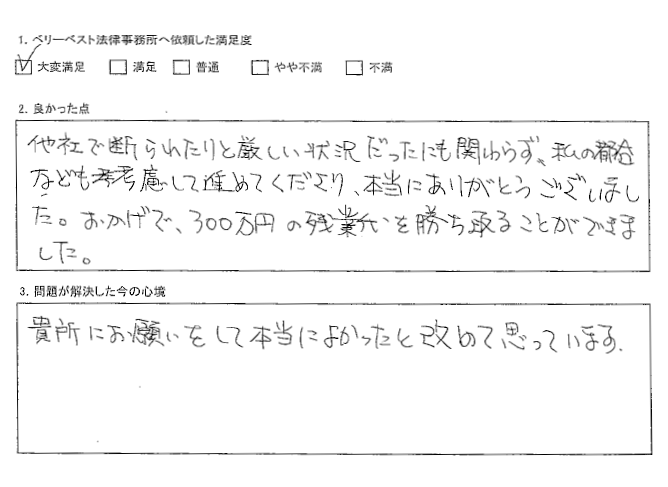 1. ベリーベスト法律事務所へ依頼した満足度
☑ 大変満足 □ 満足 □ 普通 □ やや不満 □ 不満
2. 良かった点
他社で断られたりと厳しい状況だったにも関わらず、私の都合
なども考慮して進めてくださり、本当にありがとうございまし
た。おかげで、300万円の残業代を勝ち取ることができま
した。
3. 問題が解決した今の心境
貴所にお願いをして本当によかったと改めて思っています.